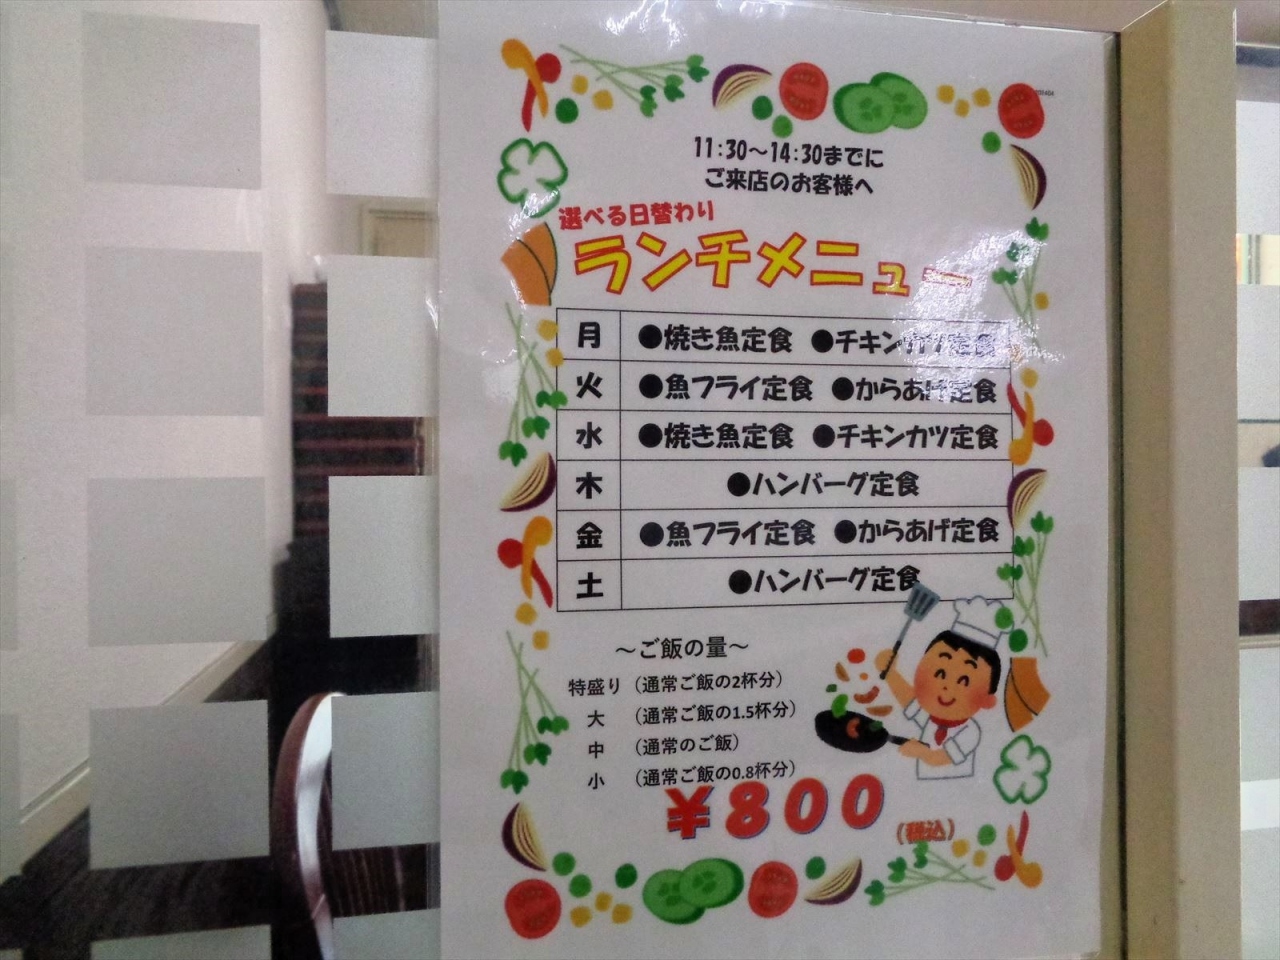 11:30～14:30までに
ご来店のお客様へ
選べる日替わり
ランチメニュー
月 ●焼き魚定食 ●チキンカツ定食
火 ●魚フライ定食 ●からあげ定食
水 ●焼き魚定食 ●チキンカツ定食
木 ●ハンバーグ定食
金 ●魚フライ定食 ●からあげ定食
土 ●ハンバーグ定食
～ご飯の量～
特盛り（通常ご飯の2杯分）
大 （通常ご飯の1.5杯分）
中 （通常のご飯）
小 （通常ご飯の0.8杯分）
¥800
(税込)